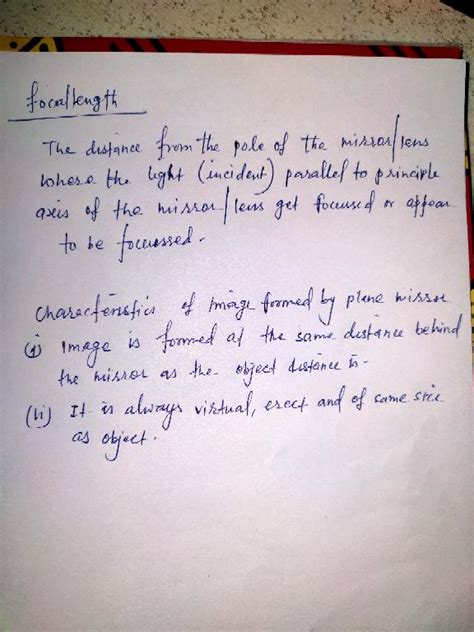 focal length
The distance from the pole of the mirror/lens
where the light (incident) parallel to principle
axis of the mirror/lens get focussed or appear
to be focussed.
Characteristics of Image formed by plane mirror
(i) Image is formed at the same distance behind
the mirror as the object distance is.
(ii) It is always virtual, erect and of same size
as object.